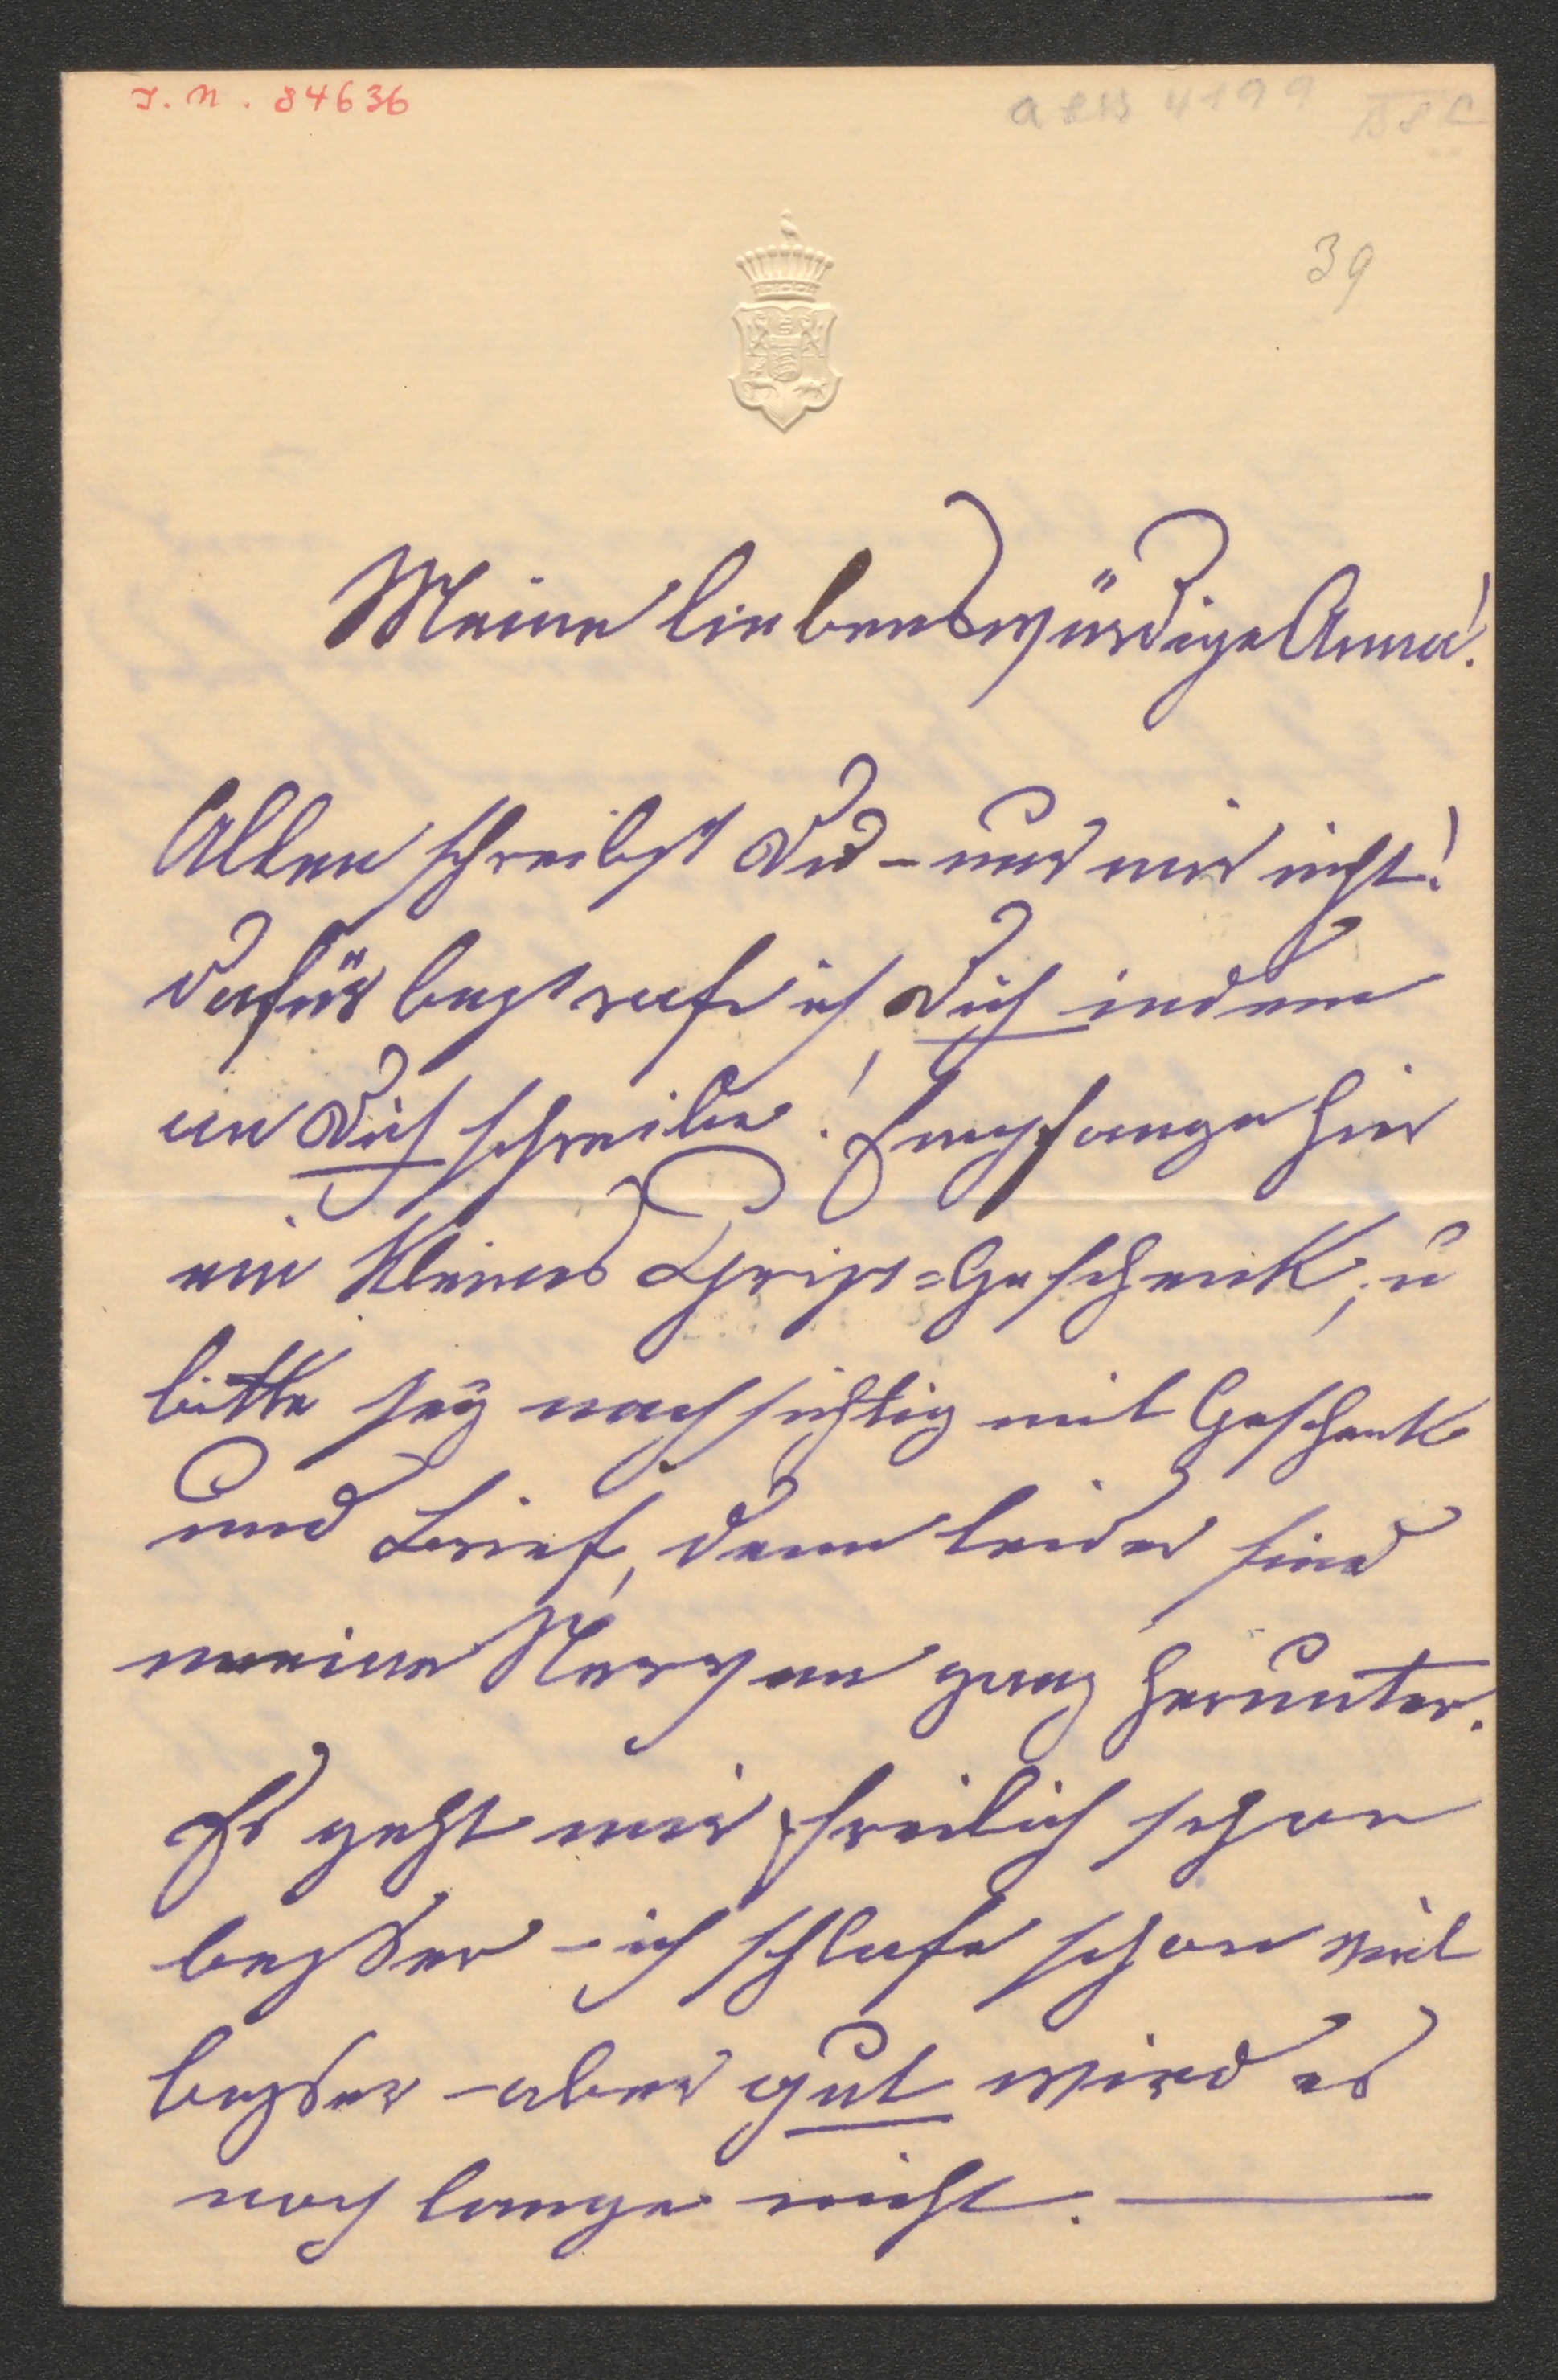 I. N. 84636
39
Meine liebenswürdige Anna!
Allen schreibst Du – nur mir nicht!
Dafür bestrafe ich Dich indem
an Dich schreibe! Empfange hier
ein kleines Christ=Geschenk, u
bitte sey nachsichtig mit Geschenk
und Brief, denn leider sind
meine Nerven ganz herunter.
Es geht mir freilich schon
besser – ich schlafe schon viel
besser – aber gut wird es
noch lange nicht. —